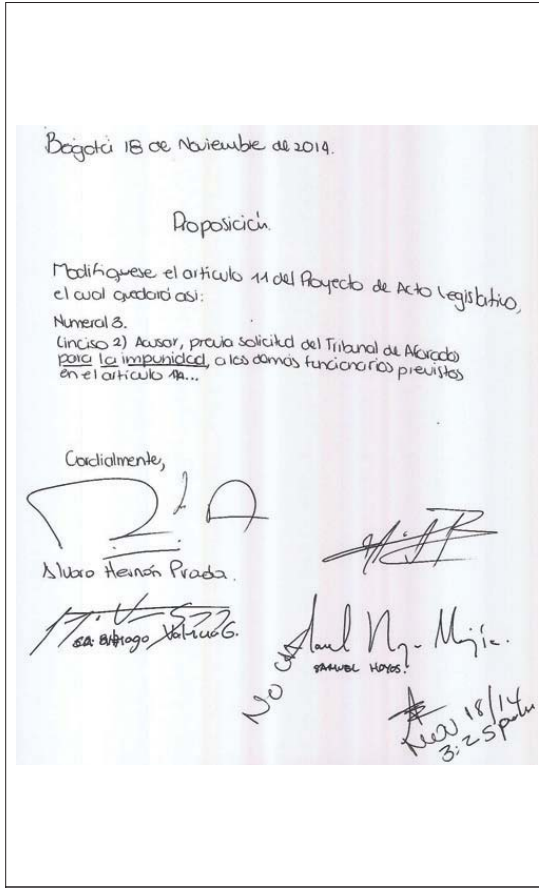 Bogotá 18 de Noviembre de 2014.
Proposición.
Modifíquese el artículo 11 del Proyecto de Acto Legislativo,
el cual quedará así:
Numeral 3.
(inciso 2) Acusar, previa solicitud del Tribunal de Aforados
para la impunidad, a los demás funcionarios previstos
en el artículo 11A...
Cordialmente,
Alvaro Hernán Prada.
Santiago Valencia G.
SAMUEL HOYOS.
Nov 18/14
3:25 pm